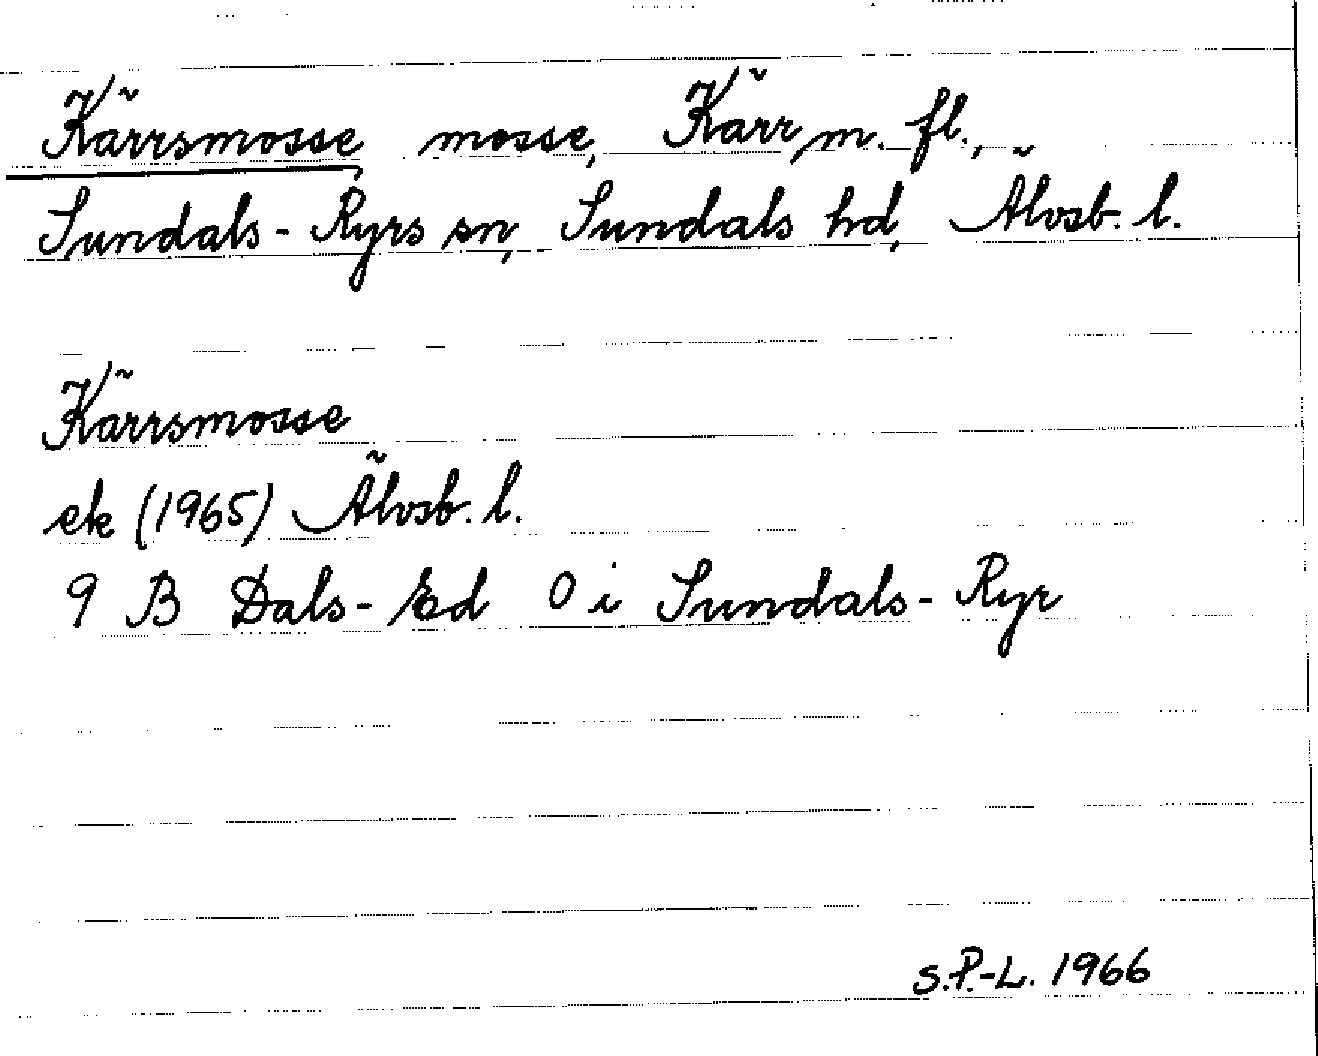 Kärrsmosse, mosse, Kärr, m. fl.,
Sundals-Ryrs sn, Sundals hd, Älvsb. l.
Kärrsmosse
ek (1965) Älvsb. l.
9 B Dals-Ed 0 i Sundals-Ryr
S.P.-L. 1966